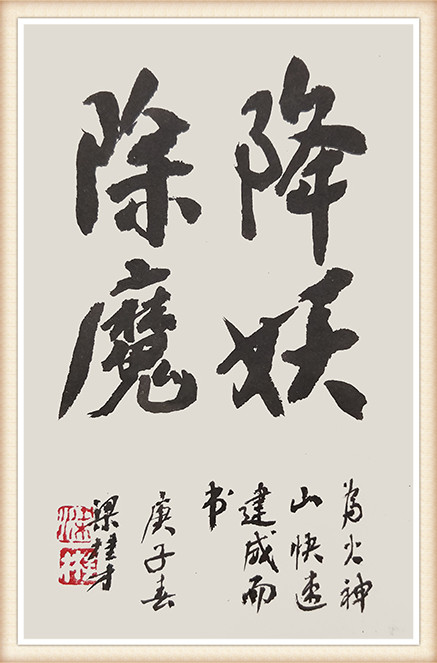 降妖
除魔
为火神
山快速
建成而
书
庚子春
梁桂才